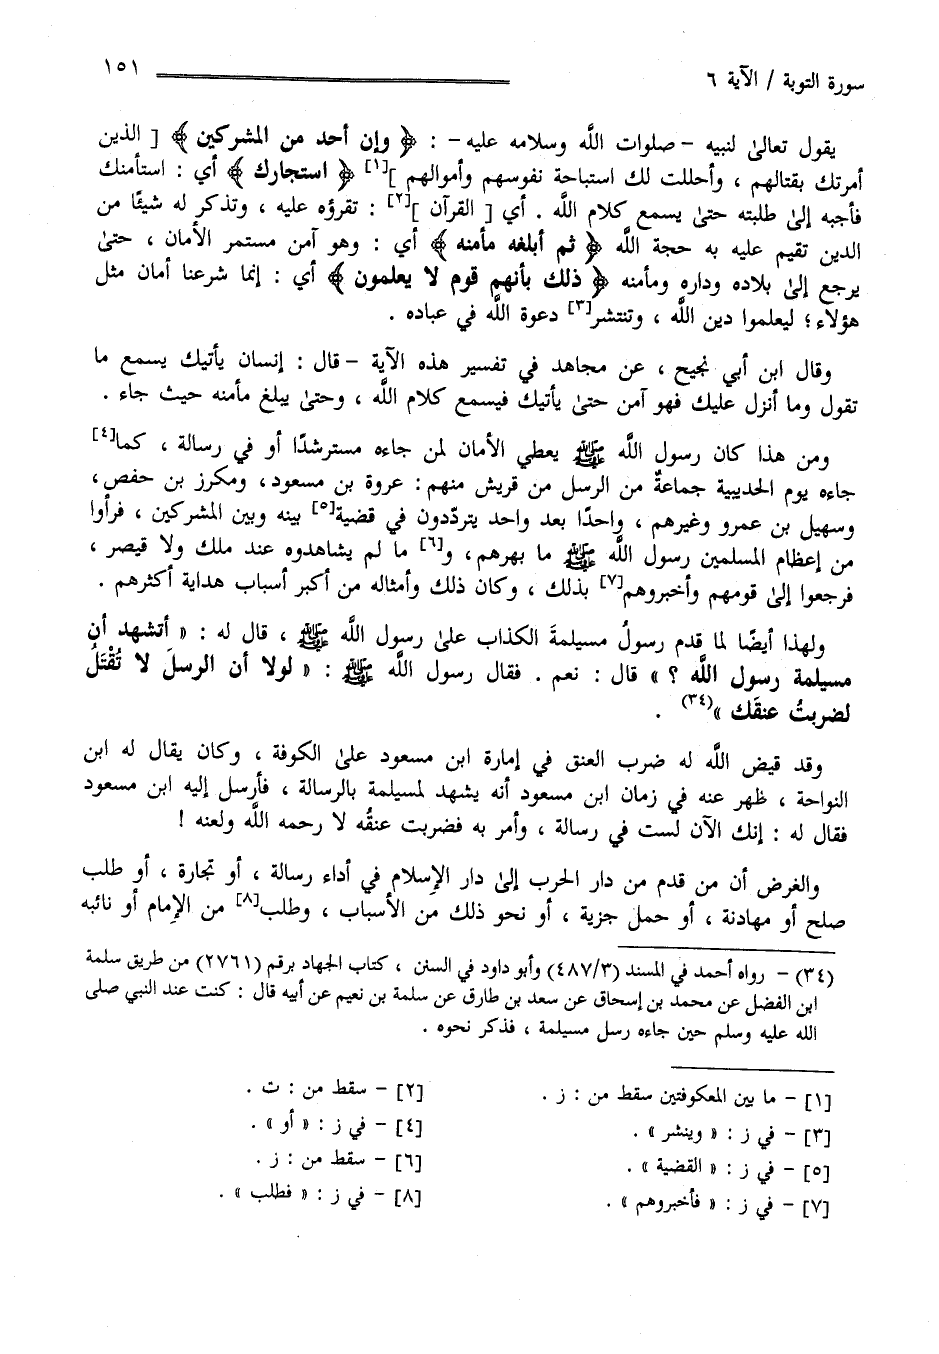 سورة التوبة / الآية ٦
١٥١
يقول تعالىٰ لنبيه -صلوات اللَّه وسلامه عليه- : ﴿ وإن أحد من المشركين ﴾ [ الذين
أمرتك بقتالهم ، وأحللت لك استباحة نفوسهم وأموالهم ][١] ﴿ استجارك ﴾ أي : استأمنك
فأجبه إلىٰ طلبته حتىٰ يسمع كلام اللَّه . أي [ القرآن ][٢] : تقرؤه عليه ، وتذكر له شيئًا من
الدين تقيم عليه به حجة اللَّه ﴿ ثم أبلغه مأمنه ﴾ أي : وهو آمن مستمر الأمان ، حتىٰ
يرجع إلىٰ بلاده وداره ومأمنه ﴿ ذلك بأنهم قوم لا يعلمون ﴾ أي : إنما شرعنا أمان مثل
هؤلاء؛ ليعلموا دين اللَّه ، وتنتشر[٣] دعوة اللَّه في عباده .
وقال ابن أبي نجيح ، عن مجاهد في تفسير هذه الآية -قال : إنسان يأتيك يسمع ما
تقول وما أنزل عليك فهو آمن حتىٰ يأتيك فيسمع كلام اللَّه ، وحتىٰ يبلغ مأمنه حيث جاء .
ومن هذا كان رسول اللَّه ﷺ يعطي الأمان لمن جاءه مسترشدًا أو في رسالة ، كما[٤]
جاءه يوم الحديبية جماعةٌ من الرسل من قريش منهم : عروة بن مسعود، ومكرز بن حفص،
وسهيل بن عمرو وغيرهم ، واحدًا بعد واحد يتردّدون في قضية[٥] بينه وبين المشركين ، فرأوا
من إعظام المسلمين رسول اللَّه ﷺ ما بهرهم، و[٦] ما لم يشاهدوه عند ملك ولا قيصر ،
فرجعوا إلىٰ قومهم وأخبروهم[٧] بذلك ، وكان ذلك وأمثاله من أكبر أسباب هداية أكثرهم .
ولهذا أيضًا لما قدم رسولُ مسيلمةَ الكذاب علىٰ رسول اللَّه ﷺ ، قال له : « أتشهد أن
مسيلمة رسول اللَّه ؟ » قال : نعم . فقال رسول اللَّه ﷺ : « لولا أن الرسلَ لا تُقْتَلُ
لضربتُ عنقَك »(٣٤) .
وقد قيض اللَّه له ضرب العنق في إمارة ابن مسعود علىٰ الكوفة ، وكان يقال له ابن
النواحة ، ظهر عنه في زمان ابن مسعود أنه يشهد لمسيلمة بالرسالة ، فأرسل إليه ابن مسعود
فقال له : إنك الآن لست في رسالة ، وأمر به فضربت عنقُه لا رحمه اللَّه ولعنه !
والغرض أن من قدم من دار الحرب إلىٰ دار الإسلام في أداء رسالة ، أو تجارة ، أو طلب
صلح أو مهادنة ، أو حمل جزية ، أو نحو ذلك من الأسباب ، وطلب[٨] من الإمام أو نائبه
(٣٤) - رواه أحمد في المسند (٤٨٧/٣) وأبو داود في السنن ، كتاب الجهاد برقم (٢٧٦١) من طريق سلمة
ابن الفضل عن محمد بن إسحاق عن سعد بن طارق عن سلمة بن نعيم عن أبيه قال : كنت عند النبي صلى
الله عليه وسلم حين جاءه رسل مسيلمة ، فذكر نحوه .
[١] - ما بين المعكوفتين سقط من : ز .
[٢] - سقط من : ت .
[٣] - في ز : « وينشر » .
[٤] - في ز : « أو » .
[٥] - في ز : « القضية » .
[٦] - سقط من : ز .
[٧] - في ز : « فأخبروهم » .
[٨] - في ز : « فطلب » .